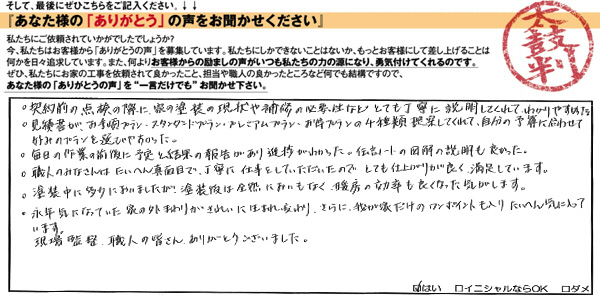 そして、最後にぜひこちらをご記入ください。↓↓
『あなた様の「ありがとう」の声をお聞かせください』
私たちにご依頼されていかがでしたでしょうか?
今、私たちはお客様から「ありがとうの声」を募集しています。私たちにしかできないことはないか、もっとお客様にして差し上げることは
何かを日々追求しています。また、何よりお客様からの励ましの声がいつも私たちの力の源になり、勇気付けてくれるのです。
ぜひ、私たちにお家の工事を依頼されて良かったこと、担当や職人の良かったところなど何でも結構ですので、
あなた様の「ありがとうの声」を“一言だけでも”お聞かせ下さい。
太鼓判
○契約前の点検の際に、家の塗装の現状や補修の必要性などとても丁寧に説明してくれて、わかりやすかった
○見積書がお手頃プラン・スタンダードプラン・プレミアムプラン・お得プランの4種類提案してくれて、自分の予算に合わせて
好みのプランを選びやすかった。
○毎日の作業の前後に予定と結果の報告があり進捗がわかった。伝言ノートの図解の説明も良かった。
○職人のみなさんはたいへん真面目で、丁寧に仕事をしていただいたので、とても仕上がりが良く、満足しています。
○塗装中は多少においましたが、塗装後は全然においもなく、暖房の効率も良くなった気がします。
○永年気になっていた家の外まわりがきれいに生まれ変わり、さらに、我が家だけのワンポイントも入りたいへん気に入って
います。
現場監督、職人の皆さん、ありがとうございました。
はい □イニシャルならOK □ダメ